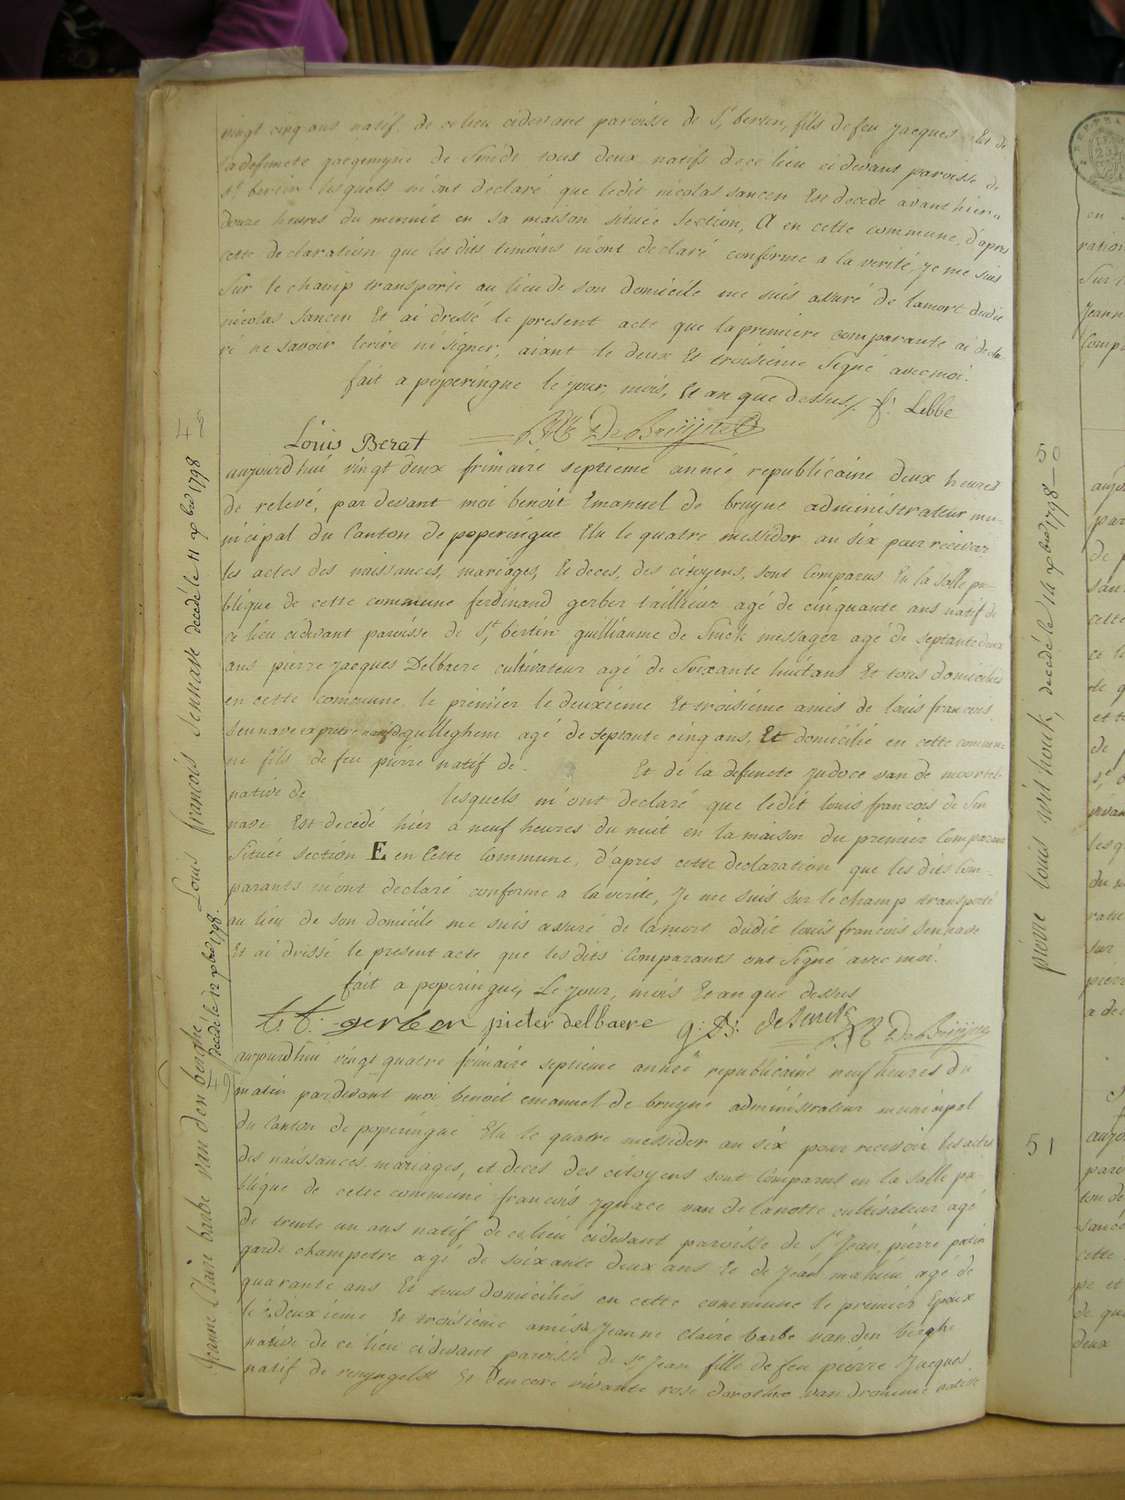 vingt cinq ans natif de ce lieu cidevant paroisse de St bertin, fils de feu jacques Et de
la defuncte de tous deux natifs de ce lieu cidevant paroisse de
St bertin lesquels m'ont declaré que ledit nicolas sancen Est decedé avant hier a
douze heures du menuit en sa maison située section, A en cette commune, d'après
cette declaration que les dits temoins m'ont declaré conforme a la verité, je me suis
sur le champ transporté au lieu de son domicile me suis assuré de la mort dudit
nicolas sancen Et ai dressé le present acte que la premiere comparante ai decla
ré ne savoir lecrire ni signer, aiant le deux Et troisieme signé avec moi.
fait a poperingue le jour, mois, Et an que dessus /. f: Lebbe
Louis Berat BE De Bruijne
48
aujourdhui vingt deux frimaire septieme année republicaine deux heures
de relevé, par devant moi benoit Emanuel de bruyne administrateur mu-
nicipal du Canton de poperingue Elu le quatre messidor an six pour recevoir
les actes des naissances, mariages, Et deces, des citoyens, sont Comparus En la salle pu-
blique de cette commune ferdinand gerber tailliéur agé de cinquante ans natif de
ce lieu cidevant paroisse de St bertin guilliaume de Snick messager agé de septante deux
ans pierre jacques Delbaere cultivateur agé de soixante huit ans Et tous domiciliés
en cette commune, le premier le deuxieme Et troisieme amis de louis francois
Sennave natif de gulleghem agé de septante cinq ans, Et domicilié en cette commu
ne fils de feu pierre natif de Et de la defuncte judoce van de moortel
native de lesquels m'ont declaré que ledit louis francois de Sen
nave Est decédé hier a neuf heures du nuit en la maison du premier Comparant
située section E en Cette Commune, d'apres cette declaration que les dits Com-
parants m'ont declaré conforme a la verité, Je me suis sur le champ transporté
au lieu de son domicile me suis assuré de la mort dudit louis francois Sennave
Et ai dressé le present acte que lesdits Comparants ont signé avec moi.
fait a poperingue, Le jour, mois Et an que dessus
f: f: gerber pieter delbaere g: D: de Snick BE De Bruijne
49
aujourdhui vingt quatre frimaire septieme année republicaine neuf heures du
matin pardevant moi benoit emanuel de bruyne administrateur municipal
du Canton de poperingue Elu le quatre messidor an six pour recevoir les actes
des naissances, mariages, et deces des citoyens sont Comparus en la salle pu-
blique de cette commune francois ygnace van de lanotte cultivateur agé
de trente un ans natif de ce lieu cidevant paroisse de St Jean, pierre
garde champetre agé de soixante deux ans Et de Jean mahieu agé de
quarante ans Et tous domiciliés en cette commune le premier Epoux
le deuxieme Et troisieme amis a Jeanne claire barbe van den berghe
native de ce lieu cidevant paroisse de St Jean fille de feu pierre Jacques
natif de renyngelst Et d'encore vivante rose dorothée van dromme native
Louis francois Sennave decedé le 11 xbre 1798
Jeanne Claire barbe van den berghe
decedé le 12 xbre 1798.
50
pierre louis decedé le 14 xbre 1798
51